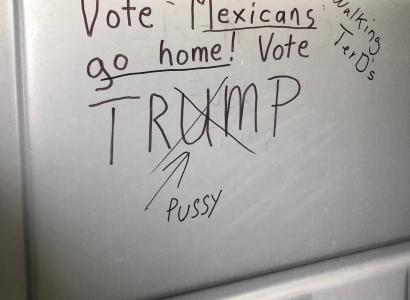 Vote Mexicans
go home! Vote
TRUMP
PUSSY
Walking
TerD's